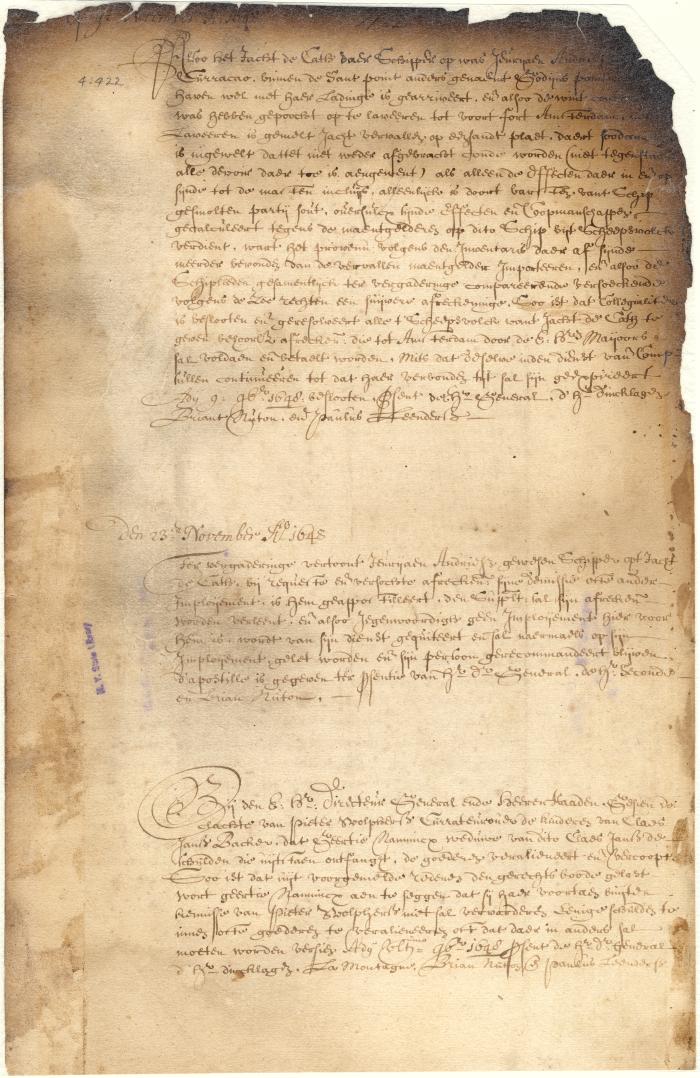 November Ao 1648
4.422
Alsoo het Jacht de Cath daer Schipper op was Jeuryaen Andri
Curracao, binnen de Sant point anders genaemt Godijns point
haven wel met haer Ladinge is gearriveert, en alsoo de wint
was hebben gepoocht op te laveeren tot voor fort Amsterdam,
Laveeren is gemelt Jacht vervallen op een sandt plaet, daert soodan
is ingewelt dattet niet weder afgebracht conde worden (niet tegenstae
alle devoir daer toe is aengewent) als alleen de Effecten daer in en op
sijnde tot de masten incluijs, alleenlijck is doort barsten vant Schip
gesmolten partij sout, oversulcx sijnde Effecten en Coopmanschappen
gecalculeert tegens de maentgelderen op dito Schip bijt Scheepsvolck
verdient, wart het provenu volgens den Inventaris daer af sijnde
meerder bevonden dan de vervallen maentgelder Importeeren, en alsoo de
Schiplieden gesamentlijck ter vergaderinge compareerende versoeckende
volgens de Zee rechten een suijvere afreeckeninge, Soo ist dat Collegialiter
is beslooten en geresolveert alle t Scheepsvolck vant Jacht de Cath te
geven behoorl afreecken: die tot Amsterdam door de E: Hren Maijoors
sal voldaen en betaelt worden, Mits dat deselve inden dienst van Comp
sullen continueeren tot dat haer verbonden tijt sal sijn geexpireert
Ady 9. 9br 1648 beslooten, Psent den Hr General, d' Hr Dincklagen
Briant Nuton, en Paulus Leendersz
Den 23en November Ao 1648
Ter vergaderinge vertoont Jeuryaen Andriesz gewesen Schipper opt Jacht
de Cath, bij requeste en versochte afreecken: sijne demissie ofte ander
Imployement, is hem geappostilleert, den Supplt: sal sijn afreecken
worden verleent, en alsoo Jegenwoordigh geen Imployement hier voor
hem is, wordt van sijn dienst gequiteert en sal naermaels op sijn
Imployement, gelet worden en sijn persoon gerecommandeert blijven
d'apostille is gegeven ter Psentie van Hr Dr General, de Hr Seconde
en Brian Nuton.
N.Y. State Library
Bij den E: Hr: Directeur General ende Heeren Raaden, Gesien de
clachte van Pieter Wolphertsz Currateur over de kinderen van Claes
Jansz Backer, dat Geertie Nannincx weduwe van dito Claes Jansz de
schulden die uijtstaen ontfangt, de goederen veralieneert en vercoopt
Soo ist dat uijt voorgemelde redenen den gerechts boode gelast
wort geertie Nannincx aen te seggen dat sij haer voortaen buijten
kennisse van Pieter Wolphertsz niet sal vervorderen Eenige schulden te
innen, ofte goederen te veralieneeren oft dat daer in anders sal
moeten worden versien, Ady 9br 1648 Psent de Hr Dr General
d' Hr Dincklagen, La Montagne, Brian Nuton en Paulus Leendersz